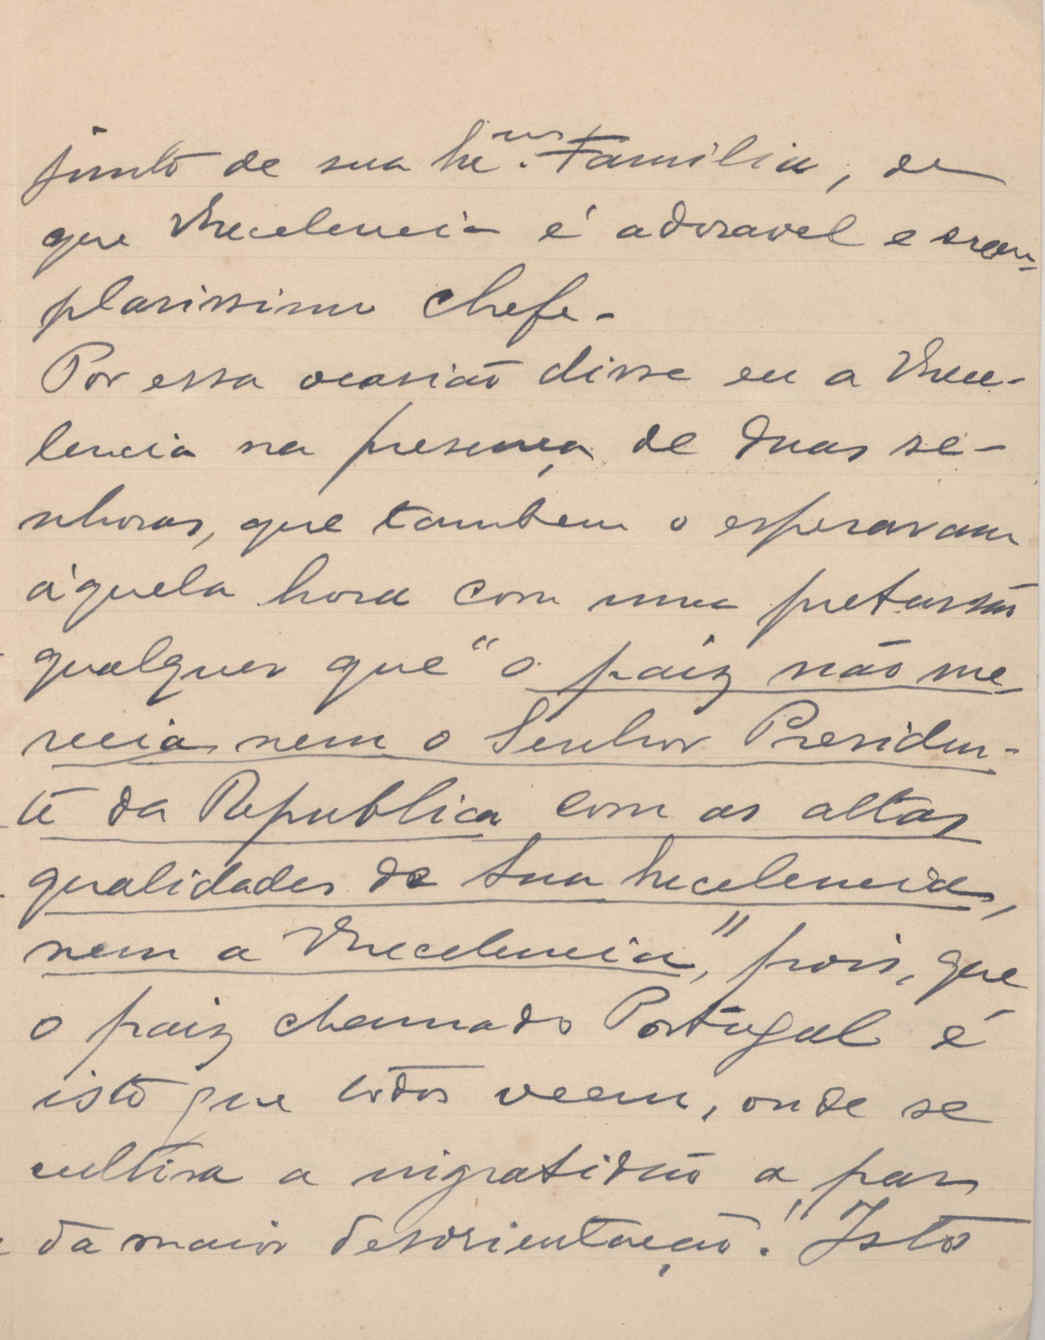 junto de sua Ex.ma Familia, de
que Vexcelencia é adoravel e exem-
plarissimo chefe.
Por essa ocasião disse eu a Vexce-
lencia na presença de duas se-
nhoras, que tambem o esperavam
áquela hora com uma pretensão
qualquer que "o paiz não me-
recia nem o Senhor Presiden-
te da Republica com as altas
qualidades de Sua Excelencia,
nem a Vexcelencia", pois, que
o paiz chamado Portugal é
isto que todos veem, onde se
cultiva a ingratidão a par
da maior desorientação! Isto